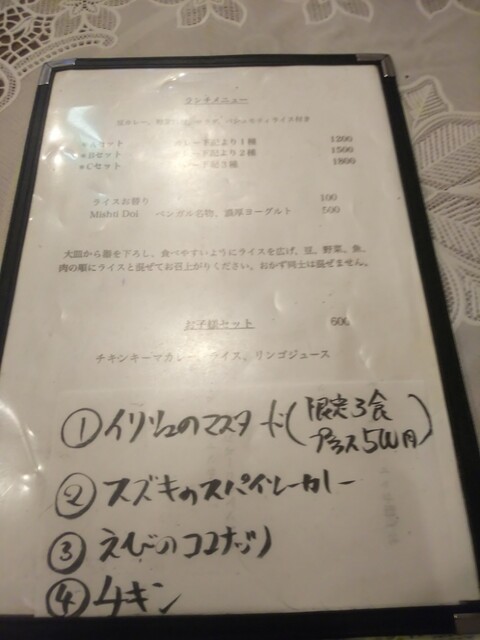 ランチメニュー
豆カレー、バスマティライス付き
セット より1種 1200
*Bセット 記より2種 1500
*Cセット 3種 1800
ライスお替り 100
Mishti Doi ベンガル名物、濃厚ヨーグルト 500
大皿から器を下ろし、食べやすいようにライスを広げ、豆、野菜、魚、
肉の順にライスと混ぜてお召上がりください。おかず同士は混ぜません。
お子様セット 600
チキンキーマカレー、ライス、リンゴジュース
①イリシュのマスタード(限定3食
プラス500円)
②スズキのスパイシーカレー
③えびのココナッツ
④チキン